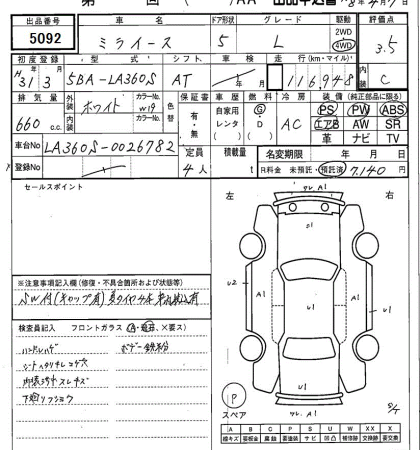 第 回 ( )/AA 出品申込書 R8年4月7日
出品番号 車名 ドア形状 グレード 駆動 評価点
5092 ミライース 5 L 2WD 4WD 3.5
初度登録 型式 シフト 車検 走行(km・マイル) 内装
H31年3月 5BA-LA360S AT 年 月 116,948 C
排気量 外装 ホワイト カラーNo. W19 色替 保証書 車歴 燃料 冷房 装備 (純正部品に限る)
660 c.c. 内装 カラーNo. 有・無 自家用 レンタ ( ) G・D AC PS PW ABS
エアB AW SR
革 ナビ TV
車台No LA360S-0026782 定員 4人 積載量 t 名変期限 年 月 日
登録No R料金 未預託・預託済 7,140円
セールスポイント
左 右
ワレ A1
U1
U2 A1 A1 U1
U1
ワレ A1
P
スペア
※注意事項記入欄 (修復・不具合箇所および状態等)
検査員記入 フロントガラス (A・飛石、×要ス)
ハンドルハゲ ボデー鉄粉
シートヘタリキレコゲ穴
内張汚れスレキズ
下廻りフショウ
A B C P S U W X XX X
線キズ 要板金 腐蝕 要塗装 サビ 凹凸 補修跡 交換跡 要交換